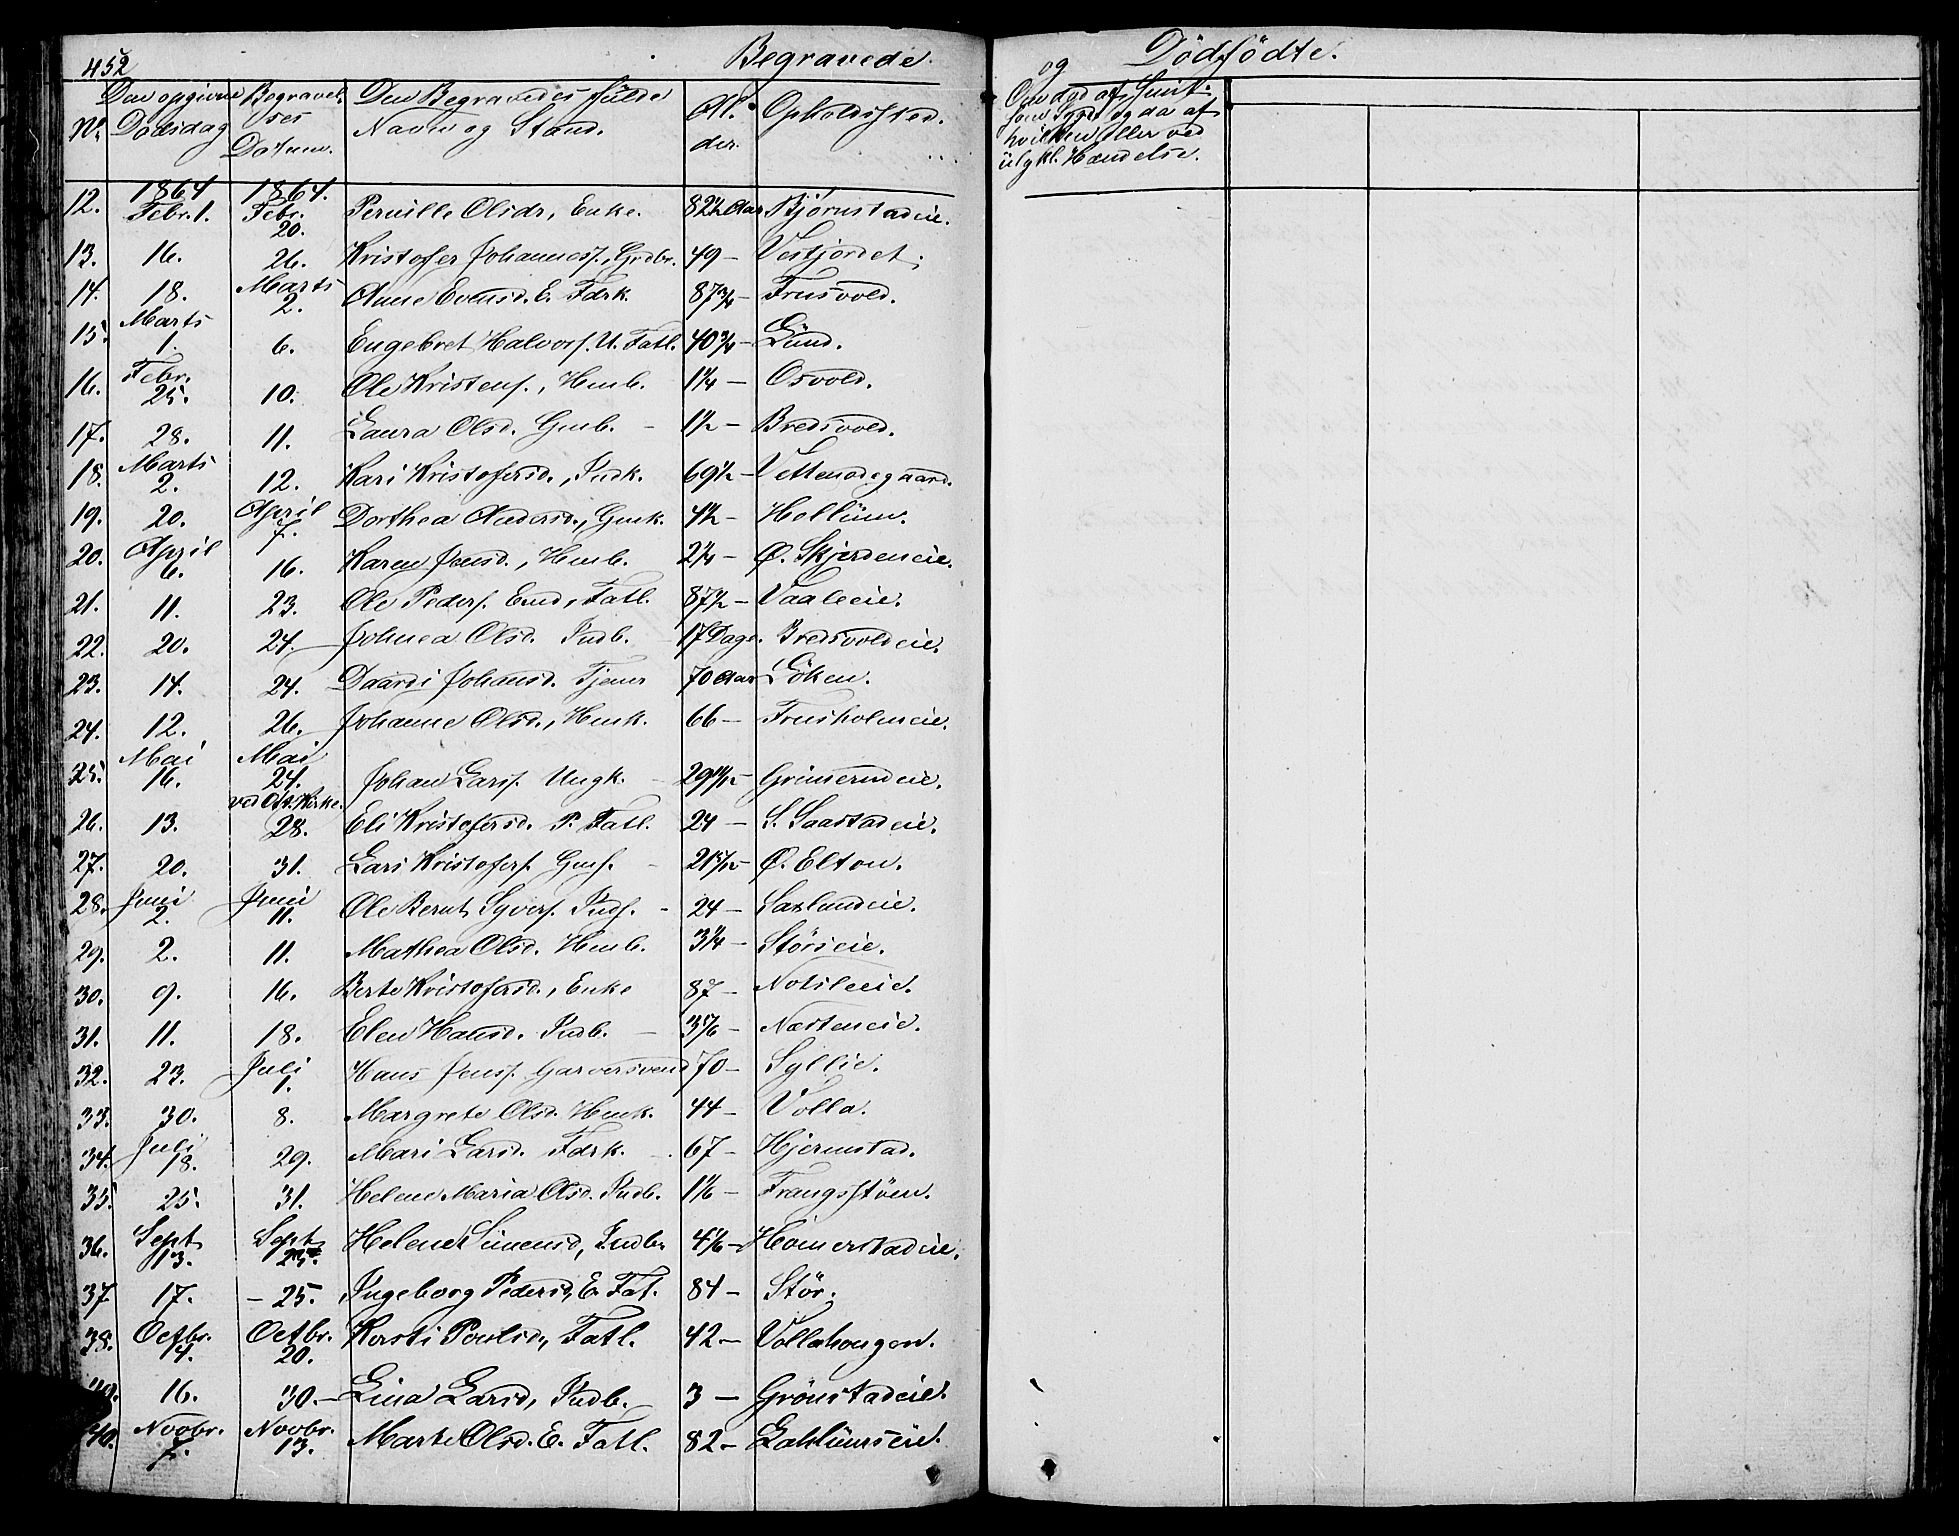 452
Begravede
og
Dödfödte.
No
Den opgivne Dödsdag
Begravelses Datum.
Den Begravedes fülde Navn og Stand.
Al. der.
Opholdssted.
Om död af Smitsom Syge og da af hvilken eller ved ülykl. Hændelse.
12. 1864 Febr. 1. 1864. Febr. 20. Pernille Olsdr, Enke. 82½ Aar Bjørnstadeie.
13. 16. 26. Kristofer Johannesf., Grdbr. 49 – Vestjordet.
14. 18. Marts 2. Anne Evensd. E. Fdrk. 87¾ – Frusvold.
15. Marts 1. 6. Engebret Halvorf. U. Fatl. 40¾ – Lünd.
16. Febr. 25. 10. Ole Kristenf., Hmb. 1¼ – Osvold.
17. 28. 11. Laura Olsd. Gmb. – 1½ – Bredsvold.
18. Marts 2. 12. Kari Kristofersd., Indk. 69½ – Vettenodegaard.
19. 20. April 7. Dorthea Andersd., Gmk. 4½ – Hellüm.
20. April 6. 16. Karen Jensd., Hmb. 2¼ – Ø. Skjerdeneie.
21. 11. 23. Ole Pederf. Emd, Fatl. 87½ – Vaaleeie.
22. 20. 24. Johnea Olsd. Indb. 17 Dage. Bredsvoldeie.
23. 14. 24. Daardi Johansd. Tjener 70 Aar Löken.
24. 12. 26. Johanne Olsd., Hmk. 66 – Frusholmeie.
25. Mai 16. Mai 24. ved Kirke. Johan Larsf. Ungk. – 29 – Grimerudeie.
26. 13. 28. Eli Kristofersd. P. Fatl. 24 – S. Saastadeie.
27. 20. 31. Lars Kristoferf. Gmf. – 21 – Ø. Elton.
28. Juni 2. Juni 11. Ole Bernt Syverf. Indf. – 24 – Saxlundeie.
29. 2. 11. Mathea Olsd. Hmb. 3¼ – Störseie.
30. 9. 16. Berte Kristofersd., Enke 87 – Notsleeie.
31. 11. 18. Elen Hansd. Indb. – 3 – Næsteneie.
32. 23. Juli 1. Hans Jensf. Garversvend 70 – Syllie.
33. 30. 8. Margrete Olsd. Hmk. 44 – Volla.
34. Juli 18. 29. Mari Larsd. Fdrk. – 67 – Hjermstad.
35. 25. 31. Helene Maria Olsd. Indb. 1⅙ – Frangsstöen.
36. Sept 13. Sept 25. Helene Simensd, Indb. 4⅙ – Homerstadeie.
37 17. – 25. Ingeborg Pedersd, E. Fat. 84 – Stör.
38. Octbr. 14. Octbr. 20. Kersti Poulsd, Fatl. 42 – Vollahougen.
39. 16. 30. – Lina Larsd, Indb. 3 – Grönstadeie.
40. Novbr. 7. Novbr. 13. Marte Olsd. E. Fatl. 82 – Lakslünseie.